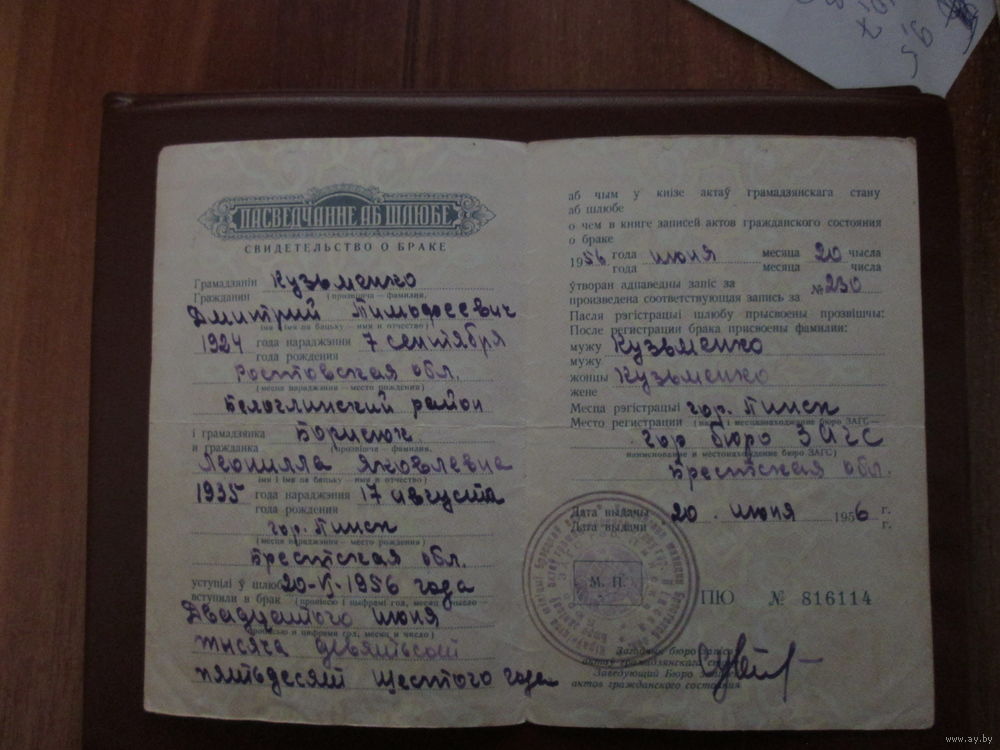 ПАСВЕДЧАННЕ АБ ШЛЮБЕ
СВИДЕТЕЛЬСТВО О БРАКЕ
Грамадзянін Кузьменко
Гражданин (прозвішча — фамилия,
Дмитрий Тимофеевич
імя і імя па бацьку — имя и отчество)
1924 года нараджэння 7 сентября
года рождения
Ростовская обл.
(месца нараджэння — место рождения)
Белоглинский район
і грамадзянка Борисюк
и гражданка (прозвішча — фамилия,
Леонилла Яковлевна
імя і імя па бацьку — имя и отчество)
1935 года нараджэння 17 августа
года рождения
гор. Пинск
(месца нараджэння — место рождения)
Брестская обл.
уступілі ў шлюб 20-VI-1956 года
вступили в брак (пропіссю і цыфрамі год, месяц і чысло
Двадцатого июня
прописью и цифрами год, месяц и число)
тысяча девятьсот
пятьдесят шестого года
аб чым у кнізе актаў грамадзянскага стану
аб шлюбе
о чем в книге записей актов гражданского состояния
о браке
1956 года июня месяца 20 чысла
года месяца числа
ўтворан адпаведны запіс за №230
произведена соответствующая запись за
Пасля рэгістрацыі шлюбу прысвоены прозвішчы:
После регистрации брака присвоены фамилии:
мужу Кузьменко
мужу
жонцы Кузьменко
жене
Месца рэгістрацыі гор. Пинск
Место регистрации бюро ЗАГС —
гор бюро ЗАГС
наименование и местонахождение бюро ЗАГС)
Брестская обл.
Дата выдачы 20 июня 1956 г.
Дата выдачи г.
М. П.
ПЮ № 816114
Загадчык бюро запісаў
актаў грамадзянскага
Заведующий Бюро
актов гражданского состояния
www.ay.by